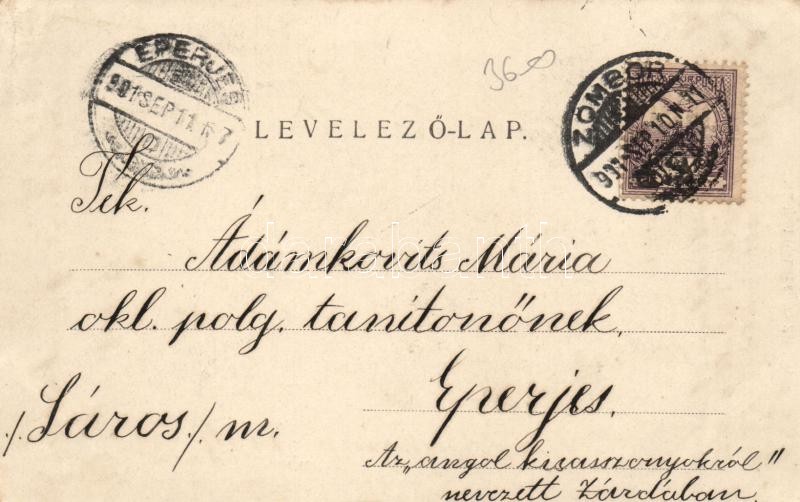 3600
EPERJES
901 SEP 11
ZOMBOR
LEVELEZŐ-LAP.
Tek.
Ádámkovits Mária
okl. polg. tanítónőnek,
Eperjes,
/. Sáros /. m.
Az „angol kisasszonyokról"
nevezett Zárdában.